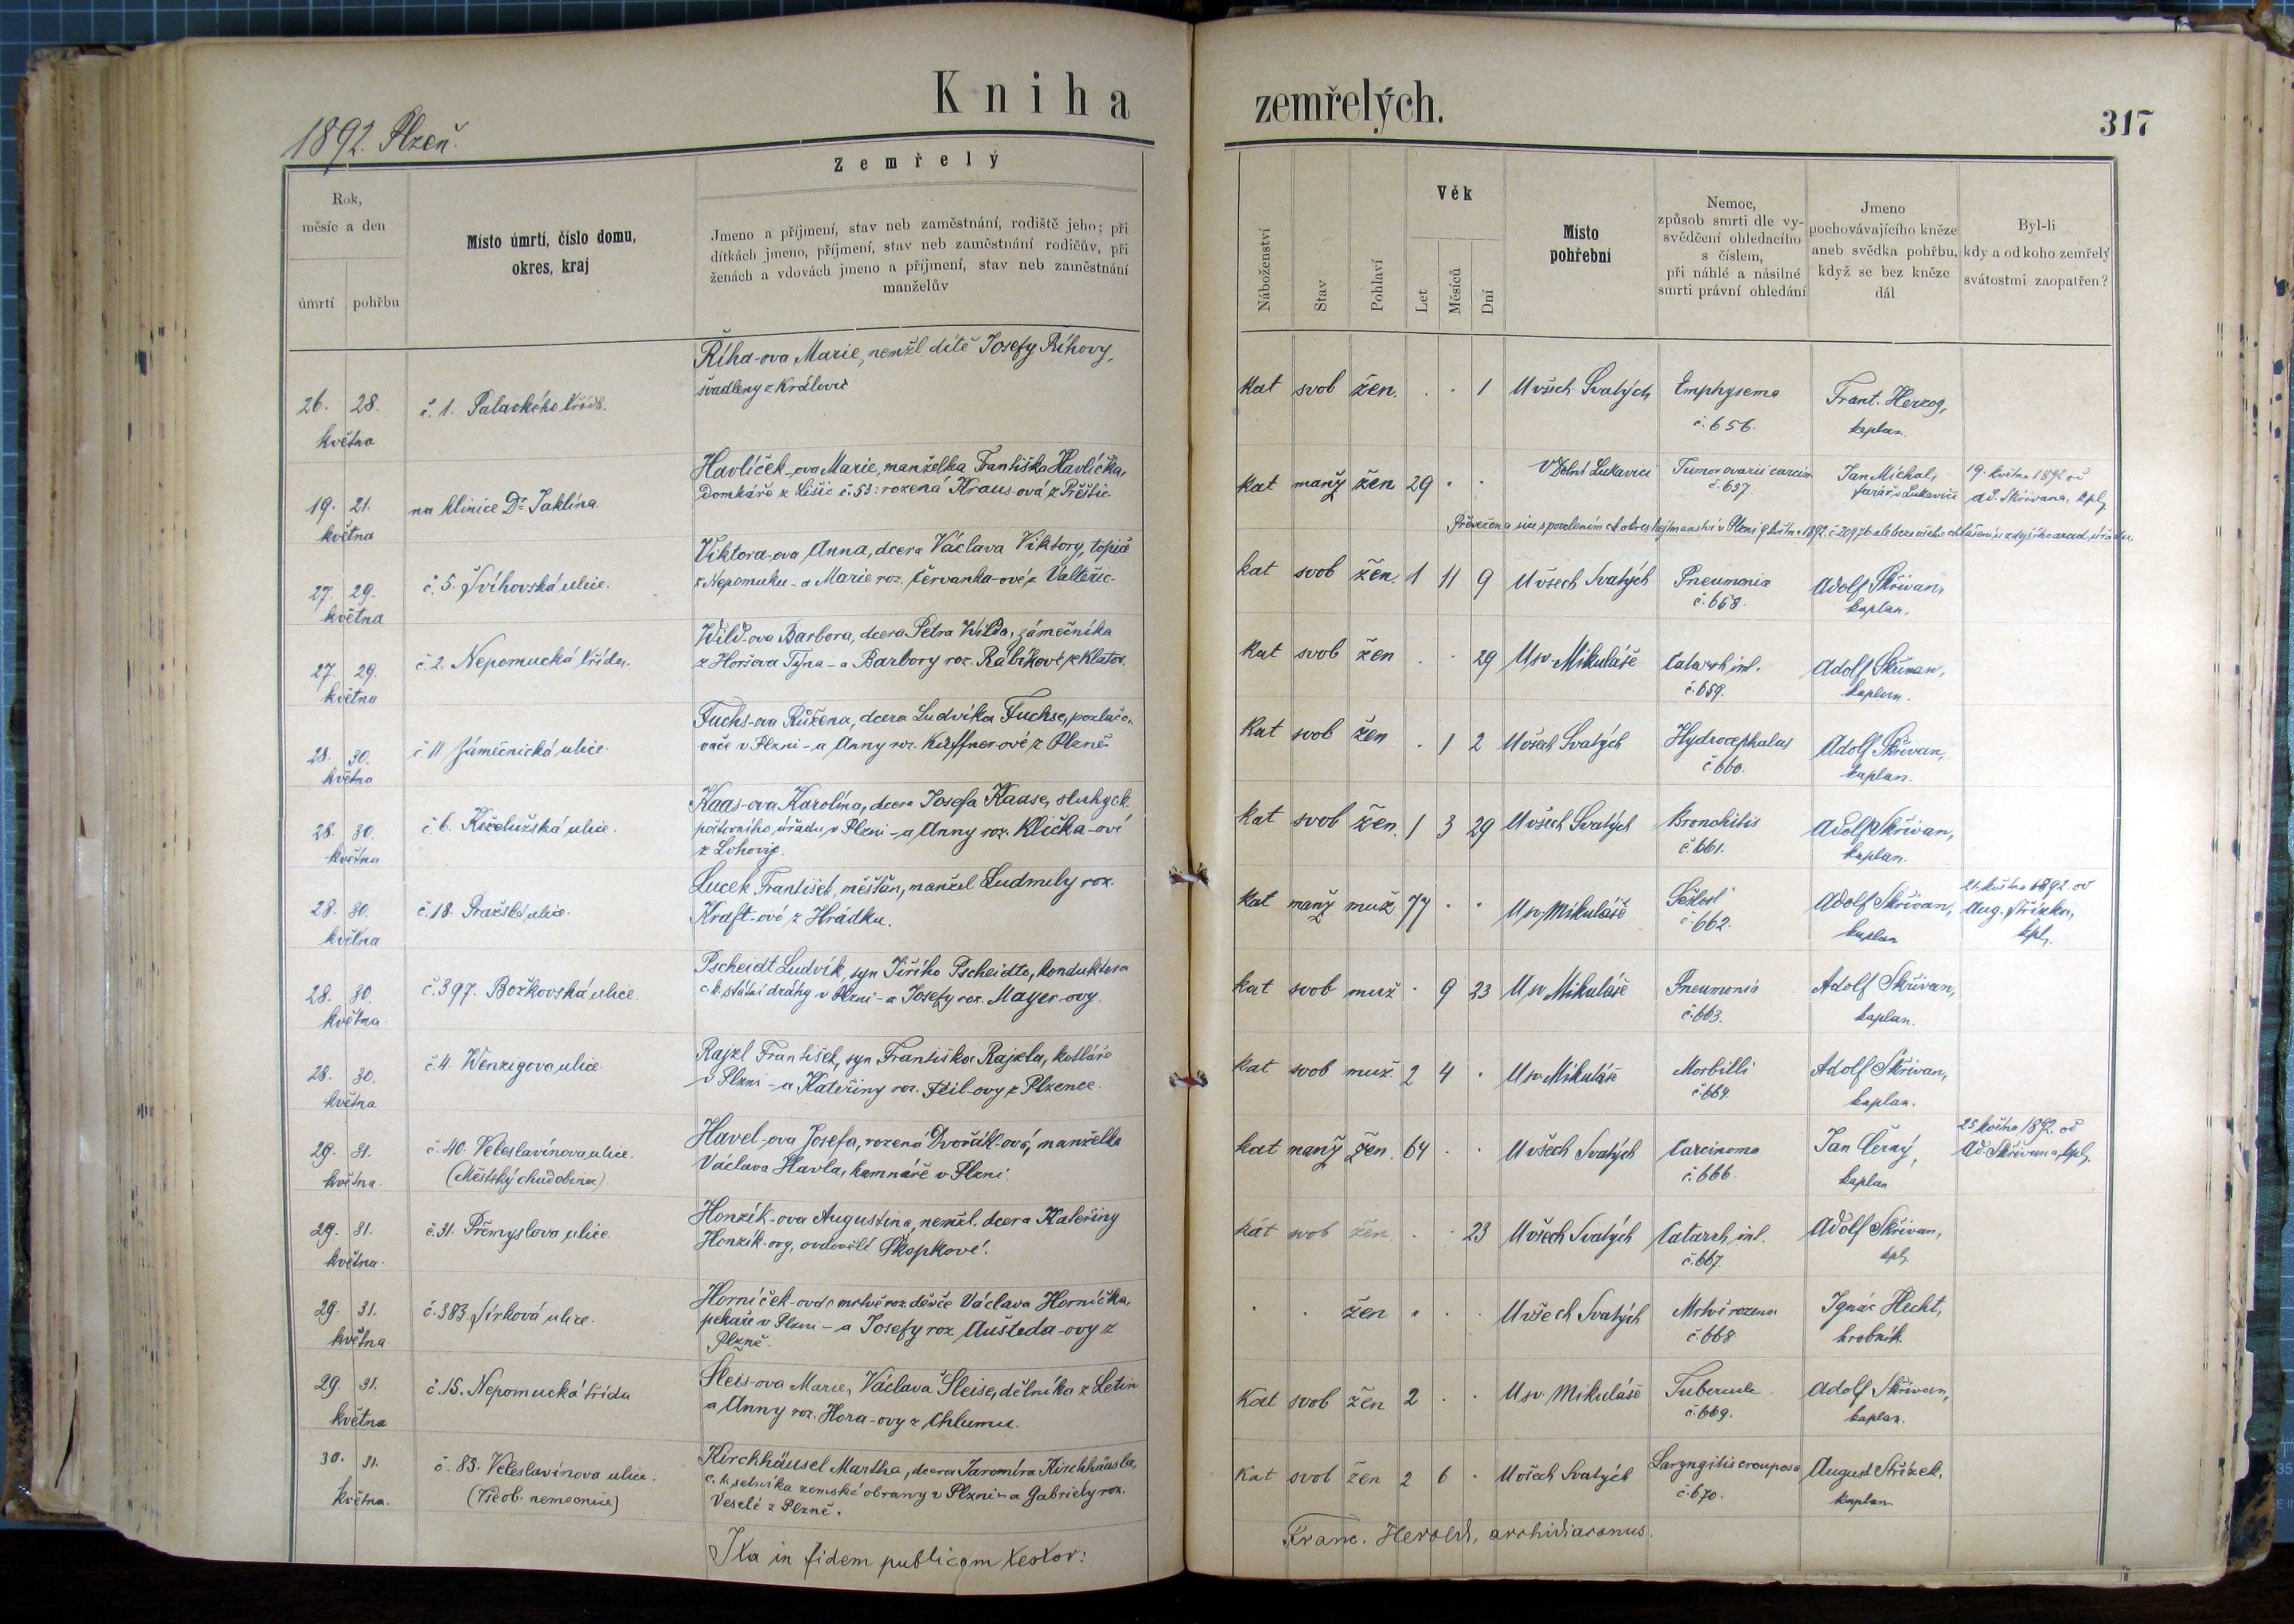 Kniha zemřelých.
317
1892. Plzeň.
Zemřelý
Rok,
měsíc a den
úmrtí
pohřbu
Místo úmrtí, číslo domu,
okres, kraj
Jmeno a příjmení, stav neb zaměstnání, rodiště jeho; při
dítkách jmeno, příjmení, stav neb zaměstnání rodičův, při
ženách a vdovách jmeno a příjmení, stav neb zaměstnání
manželův
Náboženství
Stav
Pohlaví
Věk
Let
Měsíců
Dní
Místo
pohřební
Nemoc,
způsob smrti dle vy-
svědčení ohledacího
s číslem,
při náhlé a násilné
smrti právní ohledání
Jmeno
pochovávajícího kněze
aneb svědka pohřbu,
když se bez kněze
dál
Byl-li
kdy a od koho zemřelý
svátostmi zaopatřen?
26. 28.
května
č. 1. Palackého
Říha-ova Marie, nemžl. dítě Josefy Říhovy,
švadleny z Královic
kat svob žen. . . 1 U všech Svatých
Emphysema
č. 656.
Frant. Herzog,
kaplan.
19. 21.
května
na klinice Dr. Jaklína.
Havlíček-ova Marie, manželka Františka Havlíčka,
Domkáře z Lišic č. 53: rozená Kraus-ová z Přeštic.
kat manž žen 29 . . V Dolní Lukavici
Tumor ovarii carcin.
č. 637.
Jan Míchal,
farář v Lukavici
19. května 1892 od
Ad. Skřivana, kpl.
Převežena
27. 29.
května
č. 5. Švihovská ulice.
Viktora-ova Anna, dcera Václava Viktory, topiče
z Nepomuku - a Marie roz. Červanka-ové z Valteřic.
kat svob žen. 1 11 9 U všech Svatých
Pneumonia
č. 658.
Adolf Skřivan,
kaplan.
27. 29.
května
č. 2. Nepomucká třída.
Wild-ova Barbora, dcera Petra Wilda, zámečníka
z Horšova Týna - a Barbory roz. Rabíkové z Klatov.
kat svob žen . . 29 U sv. Mikuláše
Catarrh int.
č. 659.
Adolf Skřivan,
kaplan.
28. 30.
května
č. 11 Zámečnická ulice.
Fuchs-ova Růžena, dcera Ludvíka Fuchse, pozlaco-
vače v Plzni - a Anny roz. Küffner-ové z Plzně.
kat svob žen . 1 2 U všech Svatých
Hydrocephalus
č. 660.
Adolf Skřivan,
kaplan.
28. 30.
května
č. 6. Koželužská ulice.
Kaas-ova Karolína, dcera Josefa Kaase, sluhy c.k.
poštovního úřadu v Plzni - a Anny roz. Klička-ové
z Lohovic.
kat svob žen. 1 3 29 U všech Svatých
Bronchitis
č. 661.
Adolf Skřivan,
kaplan.
28. 30.
května
č. 18. Pražská ulice.
Lucek František, měšťan, manžel Ludmily roz.
Kraft-ové z Hrádku.
kat manž muž 77 . . U sv. Mikuláše
Sešlost
č. 662.
Adolf Skřivan,
kaplan
21. května 1892. od
Aug. Střízka,
kpl.
28. 30.
května.
č. 397. Božkovská ulice.
Pscheidt Ludvík, syn Jiřího Pscheidta, konduktora
c.k. státní dráhy v Plzni - a Josefy roz. Mayer-ovy.
kat svob muž . 9 23 U sv. Mikuláše
Pneumonia
č. 663.
Adolf Skřivan,
kaplan.
28. 30.
května
č. 4. Wenzigova ulice
Rajzl František, syn Františka Rajzla, kotláře
v Plzni - a Kateřiny roz. Feil-ovy z Plzence.
kat svob muž. 2 4 . U sv. Mikuláše
Morbilli
č. 664.
Adolf Skřivan,
kaplan.
29. 31.
května.
č. 40. Veleslavínova ulice.
(Městský chudobinec)
Havel-ova Josefa, rozená Dvořák-ová, manželka
Václava Havla, kamnáře v Plzni.
kat manž žen. 64 . . U všech Svatých
Carcinoma
č. 666.
Jan Černý,
kaplan
25 května 1892. od
Ad. Skřivana, kpl.
29. 31.
května.
č. 31. Přemyslova ulice.
Honzík-ova Augustina, nemžl. dcera Kateřiny
Honzík-ovy, ovdovělé Škopkové.
kat svob žen. . . 23 U všech Svatých
Catarrh. int.
č. 667.
Adolf Skřivan,
kpl.
29. 31.
května
č. 383. Jirková ulice.
Horníček-ova mrtvě roz. děvče Václava Horníčka,
pekaře v Plzni - a Josefy roz. Aušteda-ovy z
Plzně.
. . žen . . . U všech Svatých
Mrtvě rozena
č. 668
Ignác Hecht,
hrobník.
29. 31.
května
č. 15. Nepomucká třída
Šleis-ova Marie, Václava Šleise, dělníka z Letin
a Anny roz. Hora-ovy z Chlumu.
Kat svob žen 2 . . U sv. Mikuláše
Tubercule
č. 669.
Adolf Skřivan,
kaplan.
30. 31.
května.
č. 83. Veleslavínova ulice.
(Všeob. nemocnice)
Kirchhäusel Martha, dcera Jaromíra Kirchhäusla,
c. k. setníka zemské obrany v Plzni - a Gabriely roz.
Veselé z Plzně.
Kat svob žen 2 6 . U všech Svatých
Laryngitis crouposa
č. 670.
August Střízek,
kaplan
Ita in fidem publicam testor:
Franc. Herold, archidiaconus.